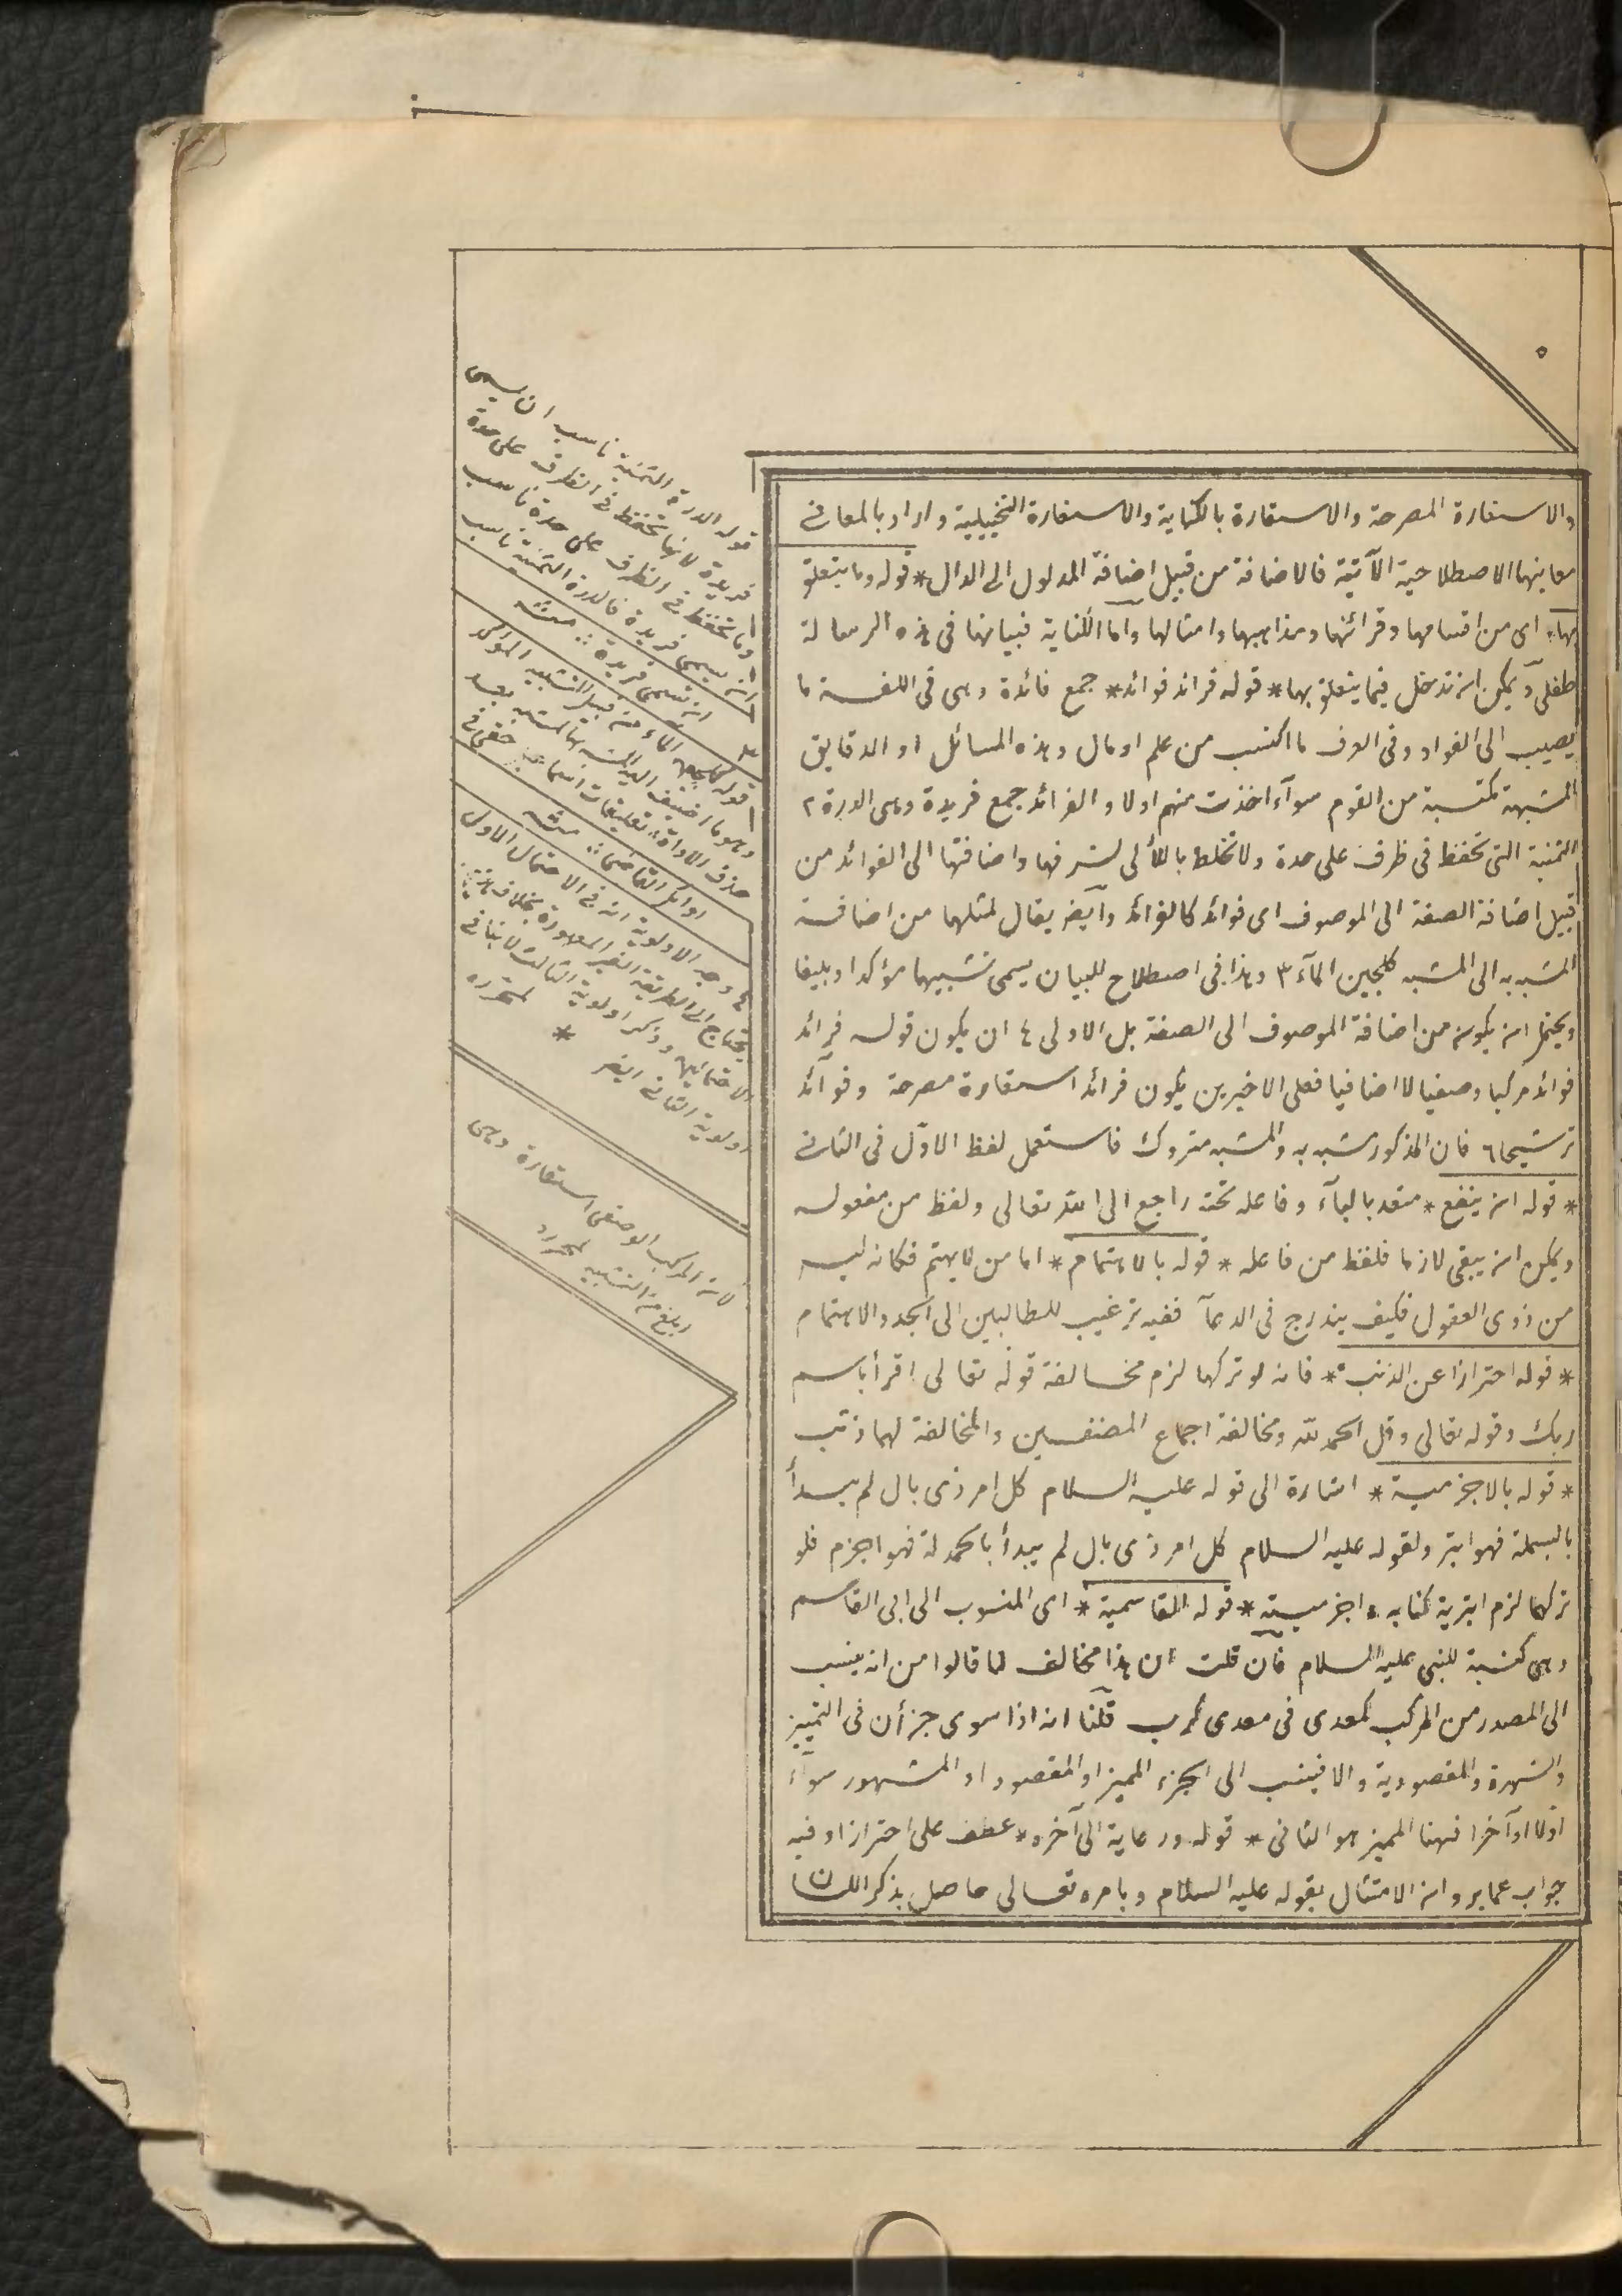 والاستعارة المصرحة والاستعارة بالكناية والاستعارة التخييلية واراد بالمعانى
معاينها الاصطلاحية الآتية فالاضافة من قبيل اضافة المدلول الى الدال * قوله وما يتعلق
بها * اى من اقسامها وقرائنها ومذاهبها وامثالها واما الكناية فبيانها فى هذه الرسالة
طفلى ويمكن ان تدخل فيما يتعلق بها * قوله فرائد فوائد * جمع فائدة وهى فى اللغة ما
يصيب الى الفواد وفى العرف ما اكتسب من علم او مال وهذه المسائل او الدقايق
المشبهة مكتسبة من القوم سوآء اخذت منهم اولا والفرائد جمع فريدة وهى الدرة ٢
الثمنية التى تحفظ فى ظرف على حدة ولا تخلط باللألى لشرفها واضافتها الى الفوائد من
قبيل اضافة الصفة الى الموصوف اى فوائد كالفرائد وآيضه يقال لمثلها من اضافة
المشبه به الى المشبه كلجين المآء ٣ وهذا فى اصطلاح للبيان يسمى تشبيها مؤكدا وبليغا
ويحتمل ان يكون من اضافة الموصوف الى الصفة بل الاولى ٤ ان يكون قوله فرائد
فوائد مركبا وصفيا لا اضافيا فعلى الاخيرين يكون فرائد استعارة مصرحة وفوآئد
ترشيحا ٦ فان المذكور مشبه به والمشبه متروك فاستعمل لفظ الاوّل فى الثانى
* قوله ان ينفع * متعد بالبآء وفاعله تحته راجع الى الله تعالى ولفظ من مفعوله
ويمكن ان يبقى لازما فلفظ من فاعله * قوله بالاهتمام * اما من لايهتم فكانه ليس
من ذوى العقول فكيف يندرج فى الدعآ ففيه ترغيب للطالبين الى الجد والاهتمام
* قوله احترازا عن الذنب * فانه لو تركها لزم مخالفة قوله تعالى اقرأ باسم
ربك وقوله تعالى وقل الحمد لله ومخالفة اجماع المصنفين والمخالفة لهما ذنب
* قوله بالاجزمية * اشارة الى قوله عليه السلام كل امر ذى بال لم يبدأ
بالبسملة فهو ابتر ولقوله عليه السلام كل امر ذى بال لم يبدأ بالحمد له فهو اجزم فلو
تركها لزم ابترية كتابه واجزميته * قوله القاسمية * اى المنسوب الى ابى القاسم
وهى كنية للنبى عليه السلام فان قلت ان هذا مخالف لما قالوا من انه ينسب
الى المصدر من المركب كمعدى فى معدى كرب قلنا انه اذا سوى جزأن فى التمييز
والشهرة والمقصودية والا فينسب الى الجزء المميز او المقصود او المشهور سوآء
اوّلا او آخرا فهنا المميز هو الثانى * قوله ورعاية الى آخره * عطف على احترازا وفيه
جواب عما يرد ان الامتثال بقوله عليه السلام وبامره تعالى حاصل بذكر اللسان
قوله الدرة الثمنية ناسب ان يسمى
فريدة لانها تحفظ فى الظرف على حدة
وما تحفظ فى الظرف على حدة ناسب
ان يسمى فريدة فالدرة الثمنية ناسب
ان تسمى فريدة منه
٣ قوله كلجين المآء من قبيل التشبيه المؤكد
وهو ما اضيف المشبه به الى المشبه بعد
حذف الاداة
٤ وجه الاولوية ان فى الاحتمال الاول
يحتاج الى الطريقة الغير المعهودة بخلاف
وذكر اولوية الثالث لا ينافى
اولوية الثانى ايضه لمحرره *
لان المركب الوصفى استعارة وهى
ابلغ من التشبيه لمحرره